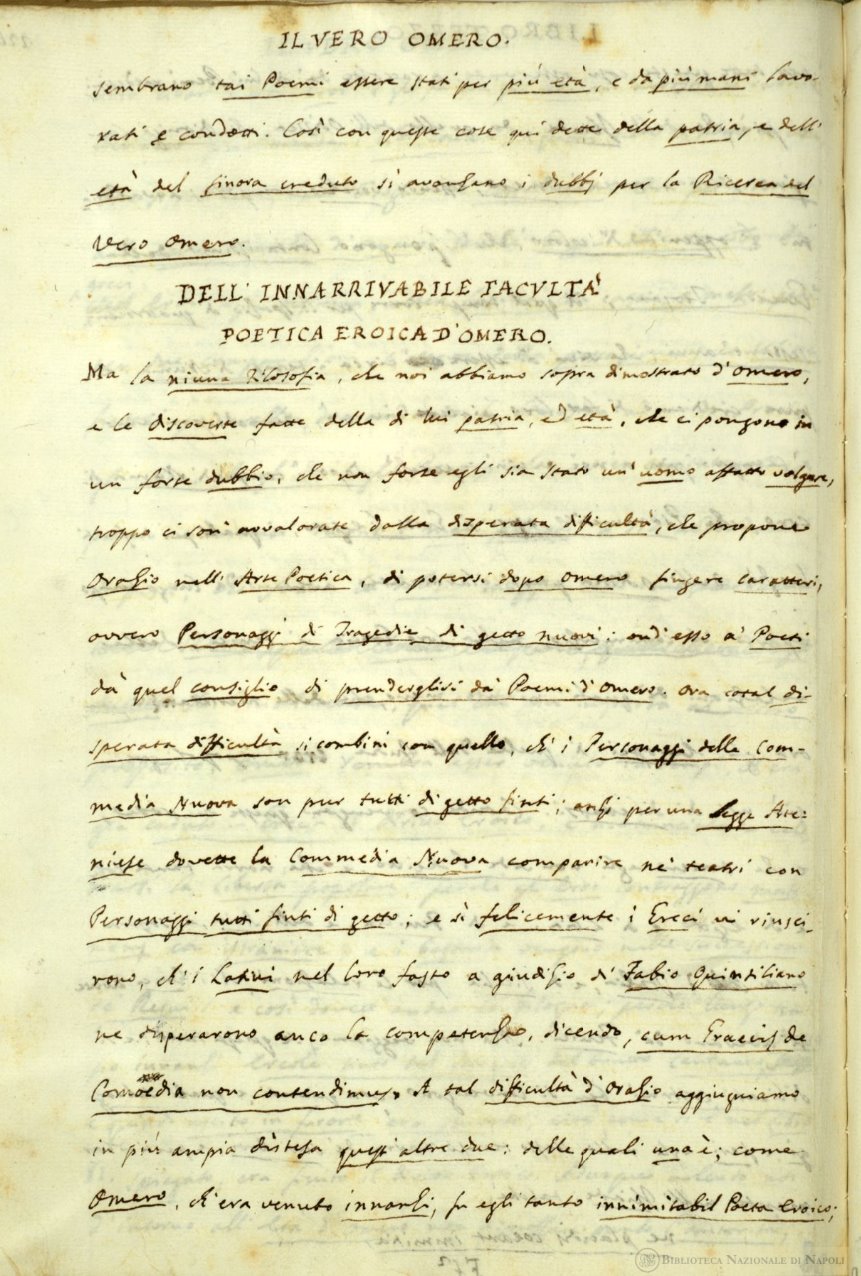 IL VERO OMERO.
sembrano tai Poemi essere stati per più età, e da più mani lavo-
rati e condotti. Così con queste cose qui dette della patria, e dell'
età del finora creduto si avanzano i dubbj per la Ricerca del
Vero Omero.
DELL' INNARRIVABILE FACULTA'
POETICA EROICA D'OMERO.
Ma la niuna Filosofia, che noi abbiamo sopra dimostrato d'Omero,
e le discoverte fatte della di lui patria, ed età, che ci pongono in
un forte dubbio, che non forse egli sia stato un' uomo affatto volgare,
troppo ci son' avvalorate dalla disperata difficultà, che propone
Orazio nell' Arte Poetica, di potersi dopo Omero fingere caratteri,
ovvero Personaggi di Tragedie di getto nuovi: ond' esso a' Poeti
dà quel consiglio di prenderglisi da' Poemi d'Omero. Ora cotal di-
sperata difficultà si combini con quello, ch' i Personaggi della Com-
media Nuova son pur tutti di getto finti; anzi per una legge Ate-
niese dovette la Commedia Nuova comparire ne' teatri con
Personaggi tutti finti di getto; e sì felicemente i Greci vi riusci-
rono, ch' i Latini nel loro fasto a giudizio di Fabio Quintiliano
ne disperarono anco la competenza, dicendo, cum Graecis de
Comoedia non contendimus. A tal difficultà d'Orazio aggiugniamo
in più ampia distesa quest' altre due: delle quali una è; come
Omero, ch' era venuto innanzi, fu egli tanto innimitabil Poeta Eroico;
BIBLIOTECA NAZIONALE DI NAPOLI